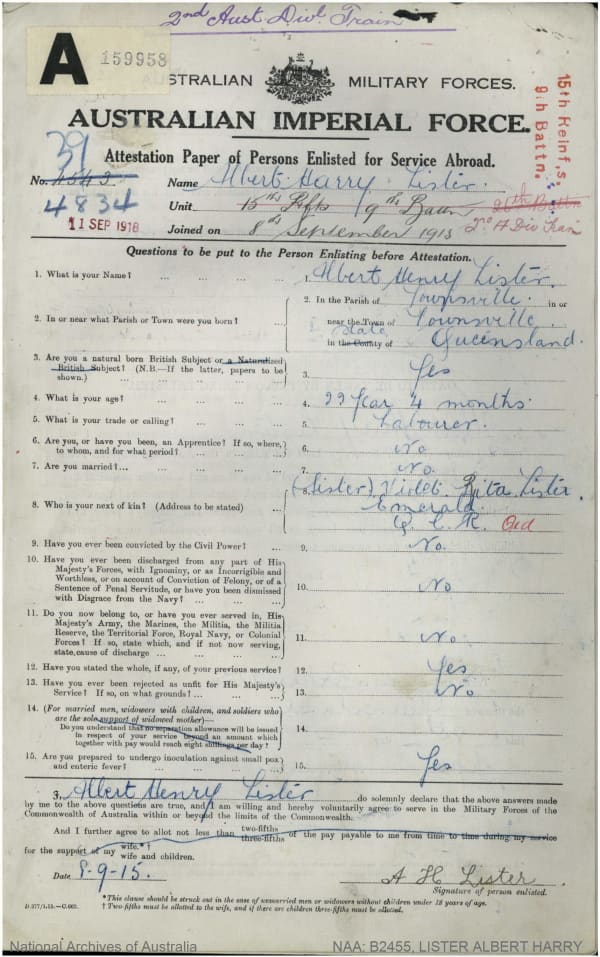 2nd Aust Divl. Train
A 159958
AUSTRALIAN MILITARY FORCES.
AUSTRALIAN IMPERIAL FORCE.
15th Reinf,s.
9th Battn.
39
Attestation Paper of Persons Enlisted for Service Abroad.
No. 4543 Name Albert Harry Lister.
4834 Unit 15th Rfts / 9th Battn 26th Battn
11 SEP 1918 Joined on 8th September 1915 2nd A Div Train
Questions to be put to the Person Enlisting before Attestation.
1. What is your Name? ... ... ... ... 1. Albert Henry Lister.
2. In or near what Parish or Town were you born? ... 2. In the Parish of Townsville. in or
near the Town of Townsville.
in the County of State Queensland.
3. Are you a natural born British Subject or a Naturalized
British Subject? (N.B.—If the latter, papers to be
shown.) ... ... ... ... 3. Yes
4. What is your age? ... ... ... ... 4. 22 Year 4 months.
5. What is your trade or calling? ... ... ... 5. Labourer.
6. Are you, or have you been, an Apprentice? If so, where,
to whom, and for what period? ... ... ... 6. No
7. Are you married?... ... ... ... 7. No.
8. Who is your next of kin? (Address to be stated) ... 8. (Sister) Violet Rita Lister
Emerald.
Q. C. R. Qld
9. Have you ever been convicted by the Civil Power? ... 9. No.
10. Have you ever been discharged from any part of His
Majesty's Forces, with Ignominy, or as Incorrigible and
Worthless, or on account of Conviction of Felony, or of a
Sentence of Penal Servitude, or have you been dismissed
with Disgrace from the Navy? ... ... ... 10. No
11. Do you now belong to, or have you ever served in, His
Majesty's Army, the Marines, the Militia, the Militia
Reserve, the Territorial Force, Royal Navy, or Colonial
Forces? If so, state which, and if not now serving,
state cause of discharge ... ... ... 11. No.
12. Have you stated the whole, if any, of your previous service? 12. Yes
13. Have you ever been rejected as unfit for His Majesty's
Service? If so, on what grounds? ... ... ... 13. No.
14. (For married men, widowers with children, and soldiers who
are the sole support of widowed mother)—
Do you understand that no separation allowance will be issued
in respect of your service beyond an amount which
together with pay would reach eight shillings per day? 14.
15. Are you prepared to undergo inoculation against small pox
and enteric fever? ... ... ... ... 15. Yes
I, Albert Henry Lister do solemnly declare that the above answers made
by me to the above questions are true, and I am willing and hereby voluntarily agree to serve in the Military Forces of the
Commonwealth of Australia within or beyond the limits of the Commonwealth.
And I further agree to allot not less than two-fifths three-fifths of the pay payable to me from time to time during my service
for the support of my wife.*† wife and children.
Date 8-9-15. A H Lister
Signature of person enlisted.
*This clause should be struck out in the case of unmarried men or widowers without children under 18 years of age.
D.377/1.15.—C.665. † Two-fifths must be allotted to the wife, and if there are children three-fifths must be allotted.
National Archives of Australia NAA: B2455, LISTER ALBERT HARRY